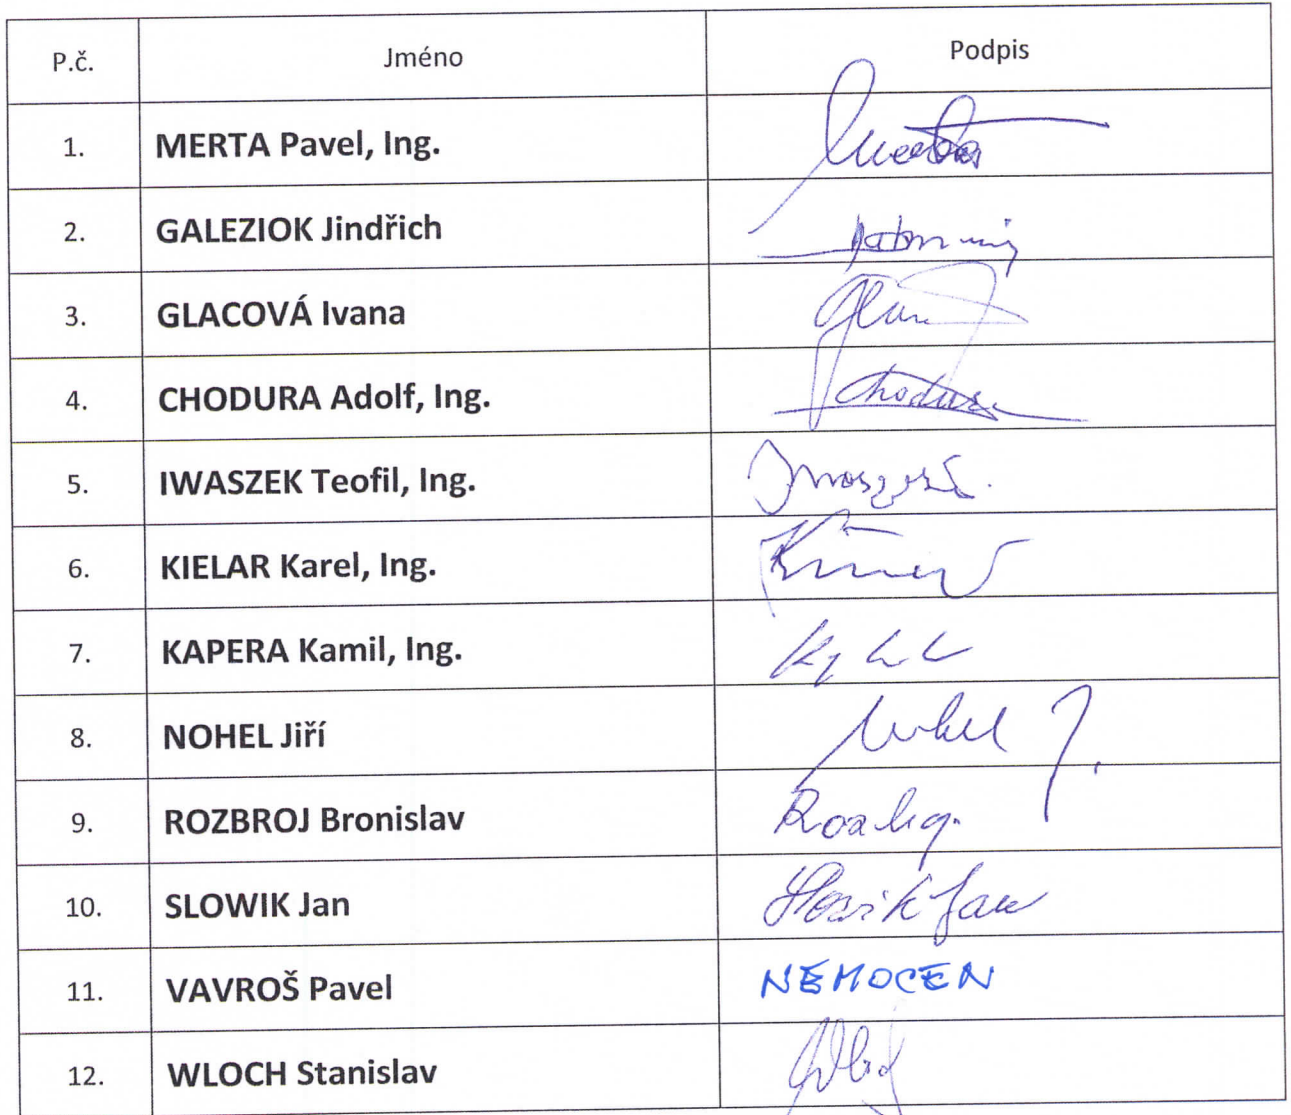 P.č. Jméno Podpis
1. MERTA Pavel, Ing.
2. GALEZIOK Jindřich
3. GLACOVÁ Ivana
4. CHODURA Adolf, Ing. Chodura
5. IWASZEK Teofil, Ing.
6. KIELAR Karel, Ing.
7. KAPERA Kamil, Ing.
8. NOHEL Jiří Nohel J.
9. ROZBROJ Bronislav
10. SLOWIK Jan Slowik Jan
11. VAVROŠ Pavel NEMOCEN
12. WLOCH Stanislav